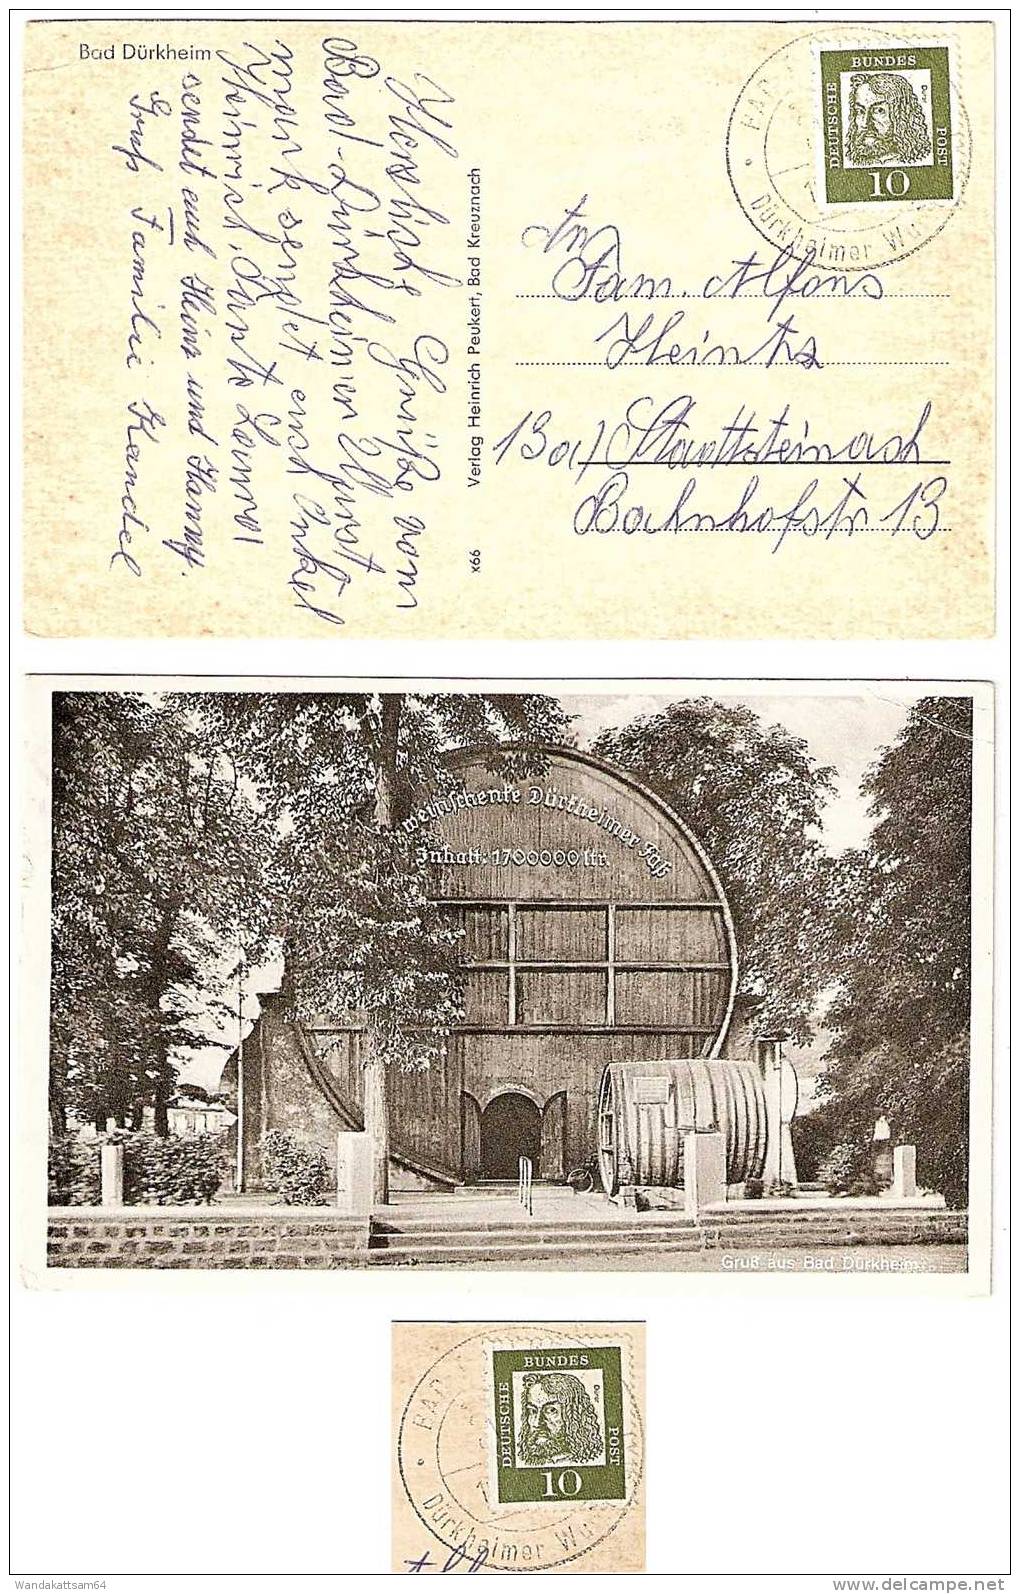 Bad Dürkheim
Herzliche Grüße vom
Bad-Dürkheimer Wurst
markt sendet euch Onkel
Heinrich, Tante
sendet euch Heinz und Hanny.
Gruß Familie Kandel
Verlag Heinrich Peukert, Bad Kreuznach
x66
BAD
Dürkheimer Wu
DEUTSCHE
BUNDES
POST
Dürer
10
An
Fam. Alfons
Heintz
13a/ Stadtsteinach
Bahnhofstr 13
Weinschenke Dürkheimer Faß
Inhalt: 1700000 ltr.
Gruß aus Bad Dürkheim
BAD
Dürkheimer Wu
DEUTSCHE
BUNDES
POST
Dürer
10
Wandakattsam64
delcampe.net